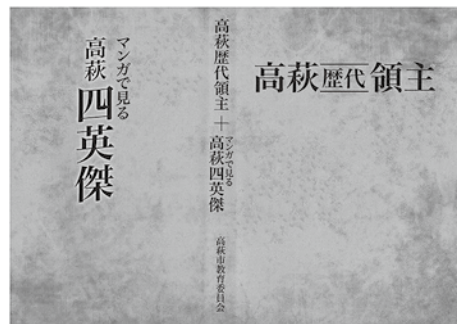 高萩歴代領主
高萩歴代領主+マンガで見る高萩四英傑
高萩市教育委員会
マンガで見る
高萩四英傑